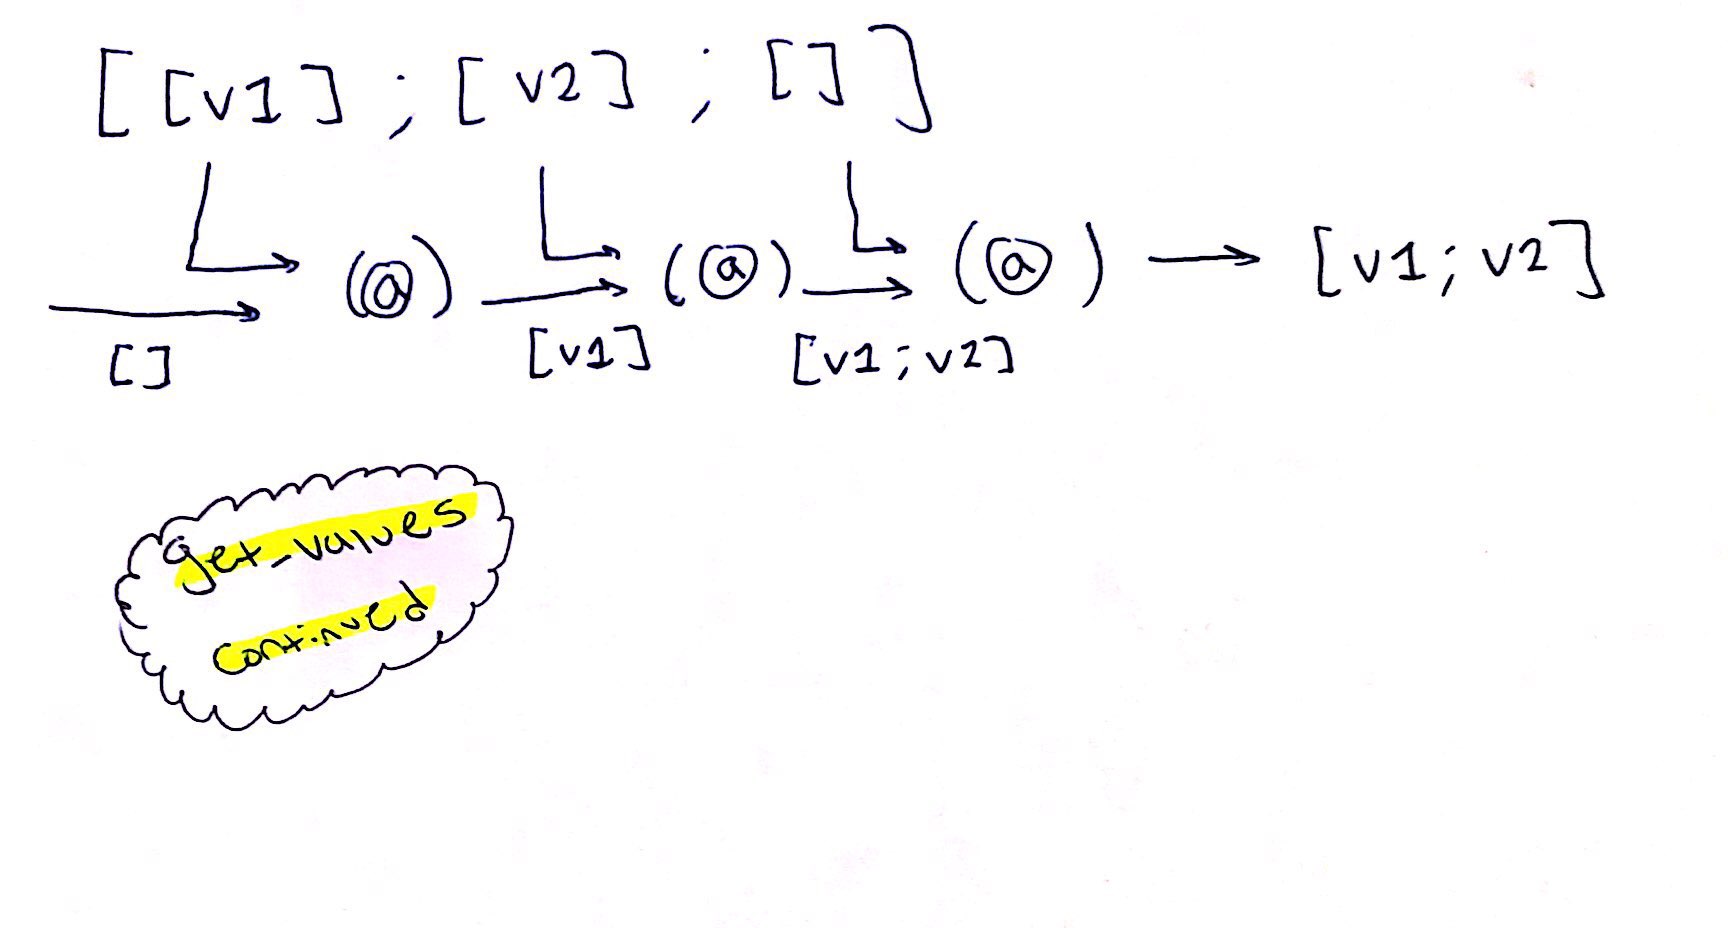 [ [v1] ; [v2] ; [] ]
(@) (@) (@) → [v1; v2]
[] [v1] [v1; v2]
get_values
continued